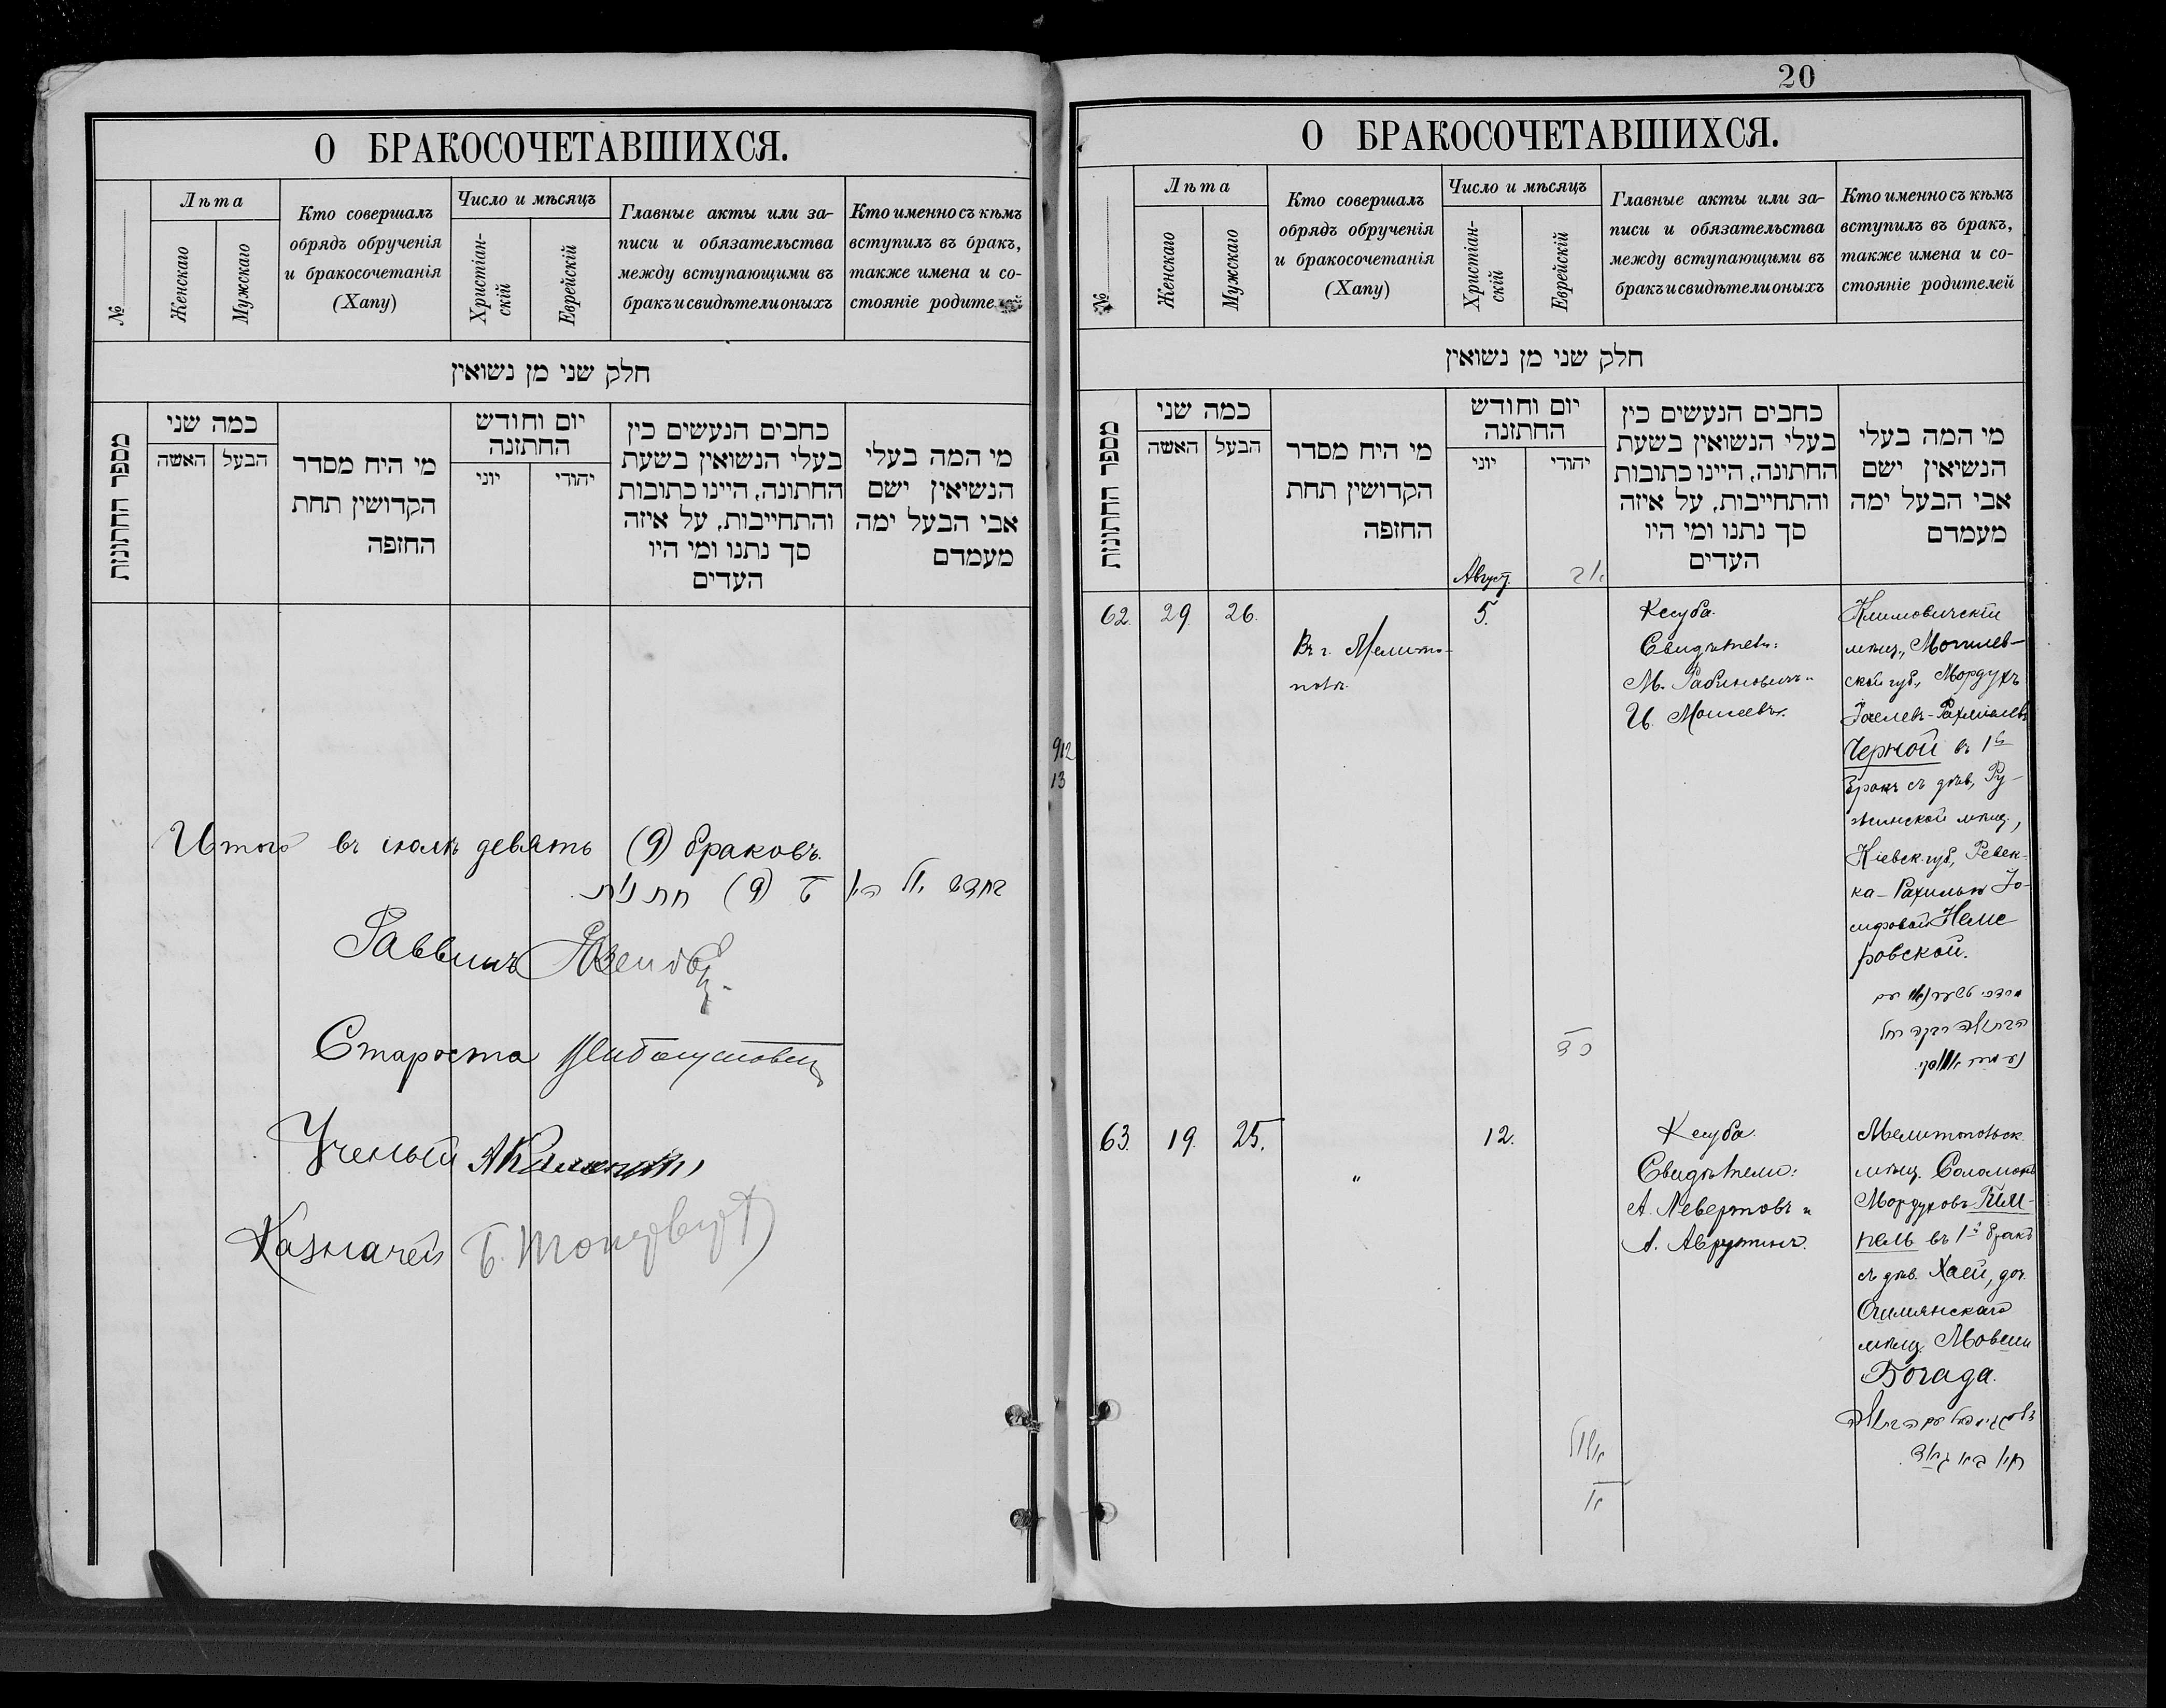 О БРАКОСОЧЕТАВШИХСЯ.
№
Лѣта
Женскаго
Мужскаго
Кто совершалъ
обрядъ обрученія
и бракосочетанія
(Хапу)
Число и мѣсяцъ
Христіан-
скій
Еврейскій
Главные акты или за-
писи и обязательства
между вступающими въ
бракъ и свидѣтели оныхъ
Кто именно съ кѣмъ
вступилъ въ бракъ,
также имена и со-
стояніе родителей
חלק שני מן נשואין
מספר החתונות
כמה שני
האשה
הבעל
מי היח מסדר
הקדושין תחת
החזפה
יום וחודש
החתזנה
יוני
יהודי
כחבים הנעשים כין
בעלי הנשואין בשעת
החתונה, היינו כתובות
והתחייבות, על איזה
סך נתנו ומי היו
העדים
מי המה בעלי
הנשיאין ישם
אבי הבעל ימה
מעמדם
Итого въ іюлѣ девять (9) браковъ.
(9) ט
Раввинъ
Староста
Ученый
Казначей
20
О БРАКОСОЧЕТАВШИХСЯ.
№
Лѣта
Женскаго
Мужскаго
Кто совершалъ
обрядъ обрученія
и бракосочетанія
(Хапу)
Число и мѣсяцъ
Христіан-
скій
Еврейскій
Главные акты или за-
писи и обязательства
между вступающими въ
бракъ и свидѣтели оныхъ
Кто именно съ кѣмъ
вступилъ въ бракъ,
также имена и со-
стояніе родителей
חלק שני מן נשואין
מספר החתונות
כמה שני
האשה
הבעל
מי היח מסדר
הקדושין תחת
החזפה
יום וחודש
החתזנה
יוני
יהודי
כחבים הנעשים כין
בעלי הנשואין בשעת
החתונה, היינו כתובות
והתחייבות, על איזה
סך נתנו ומי היו
העדים
מי המה בעלי
הנשיאין ישם
אבי הבעל ימה
מעמדם
Август.
912
13
62. 29. 26.
Въ г. Мелито-
полѣ.
5.
Ксуба.
Свидѣтели:
М. Рабиновичъ и
И. Моисеевъ.
Климовичскій
мѣщ., Могилев-
ской губ., Мордухъ
Іоселевъ-Рахміилевъ
Черной въ 1й
бракъ съ дѣв., Ру-
жинской мѣщ.,
Кіевск. губ., Ревек-
ка-Рахилью Іо-
сифовой Неме
ровской.
63. 19. 25.
"
12.
Ксуба.
Свидѣтели:
А. Левертовъ и
А. Аврутинъ.
Мелитопольск.
мѣщ. Соломонъ
Мордуховъ Ким-
пель въ 1й бракъ
съ дѣв. Хаей, доч.
Ошмянскаго
мѣщ. Мовши
Богада.